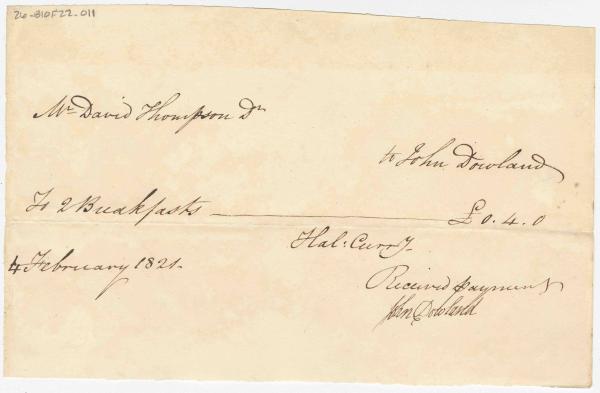 26-B10F22-011
Mr David Thompson Dr
to John Dowland
To 2 Breakfasts £0.4.0
Hal: Curry
4 February 1821
Received payment
John Dowland